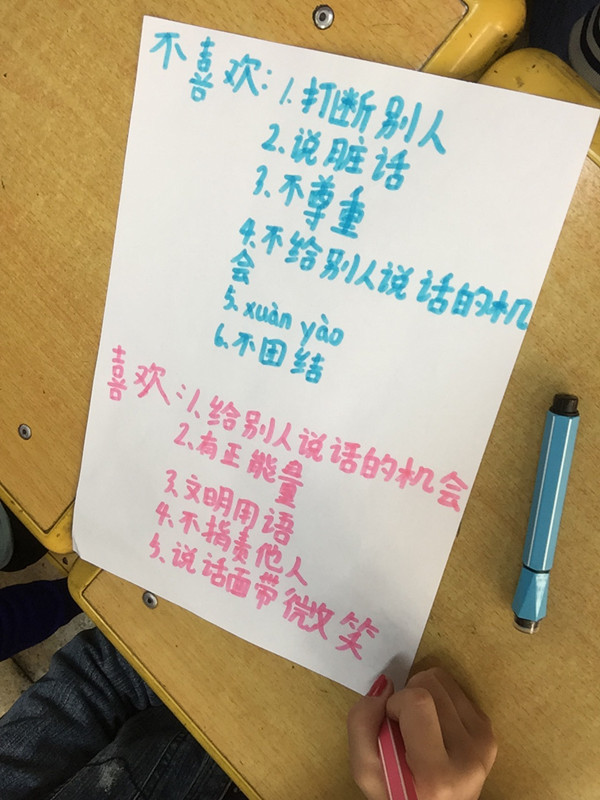 不喜欢:1.打断别人
2.说脏话
3.不尊重
4.不给别人说话的机
会
5.xuàn yào
6.不团结
喜欢:1.给别人说话的机会
2.有正能量
3.文明用语
4.不指责他人
5.说话面带微笑